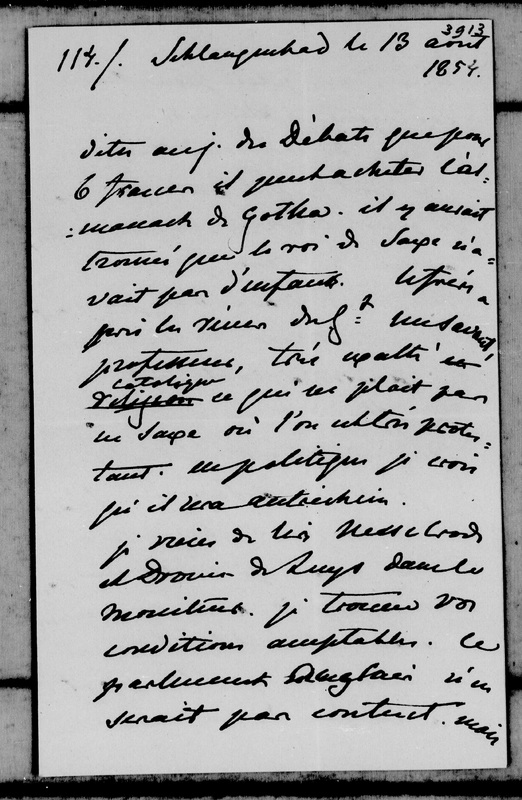 3913
114./. Schlangenbad le 13 août
1854.
dites auj. des Débats que pour
6 francs il peut acheter l'al-
=manach de Gotha. il y aurait
trouvé que le roi de Saxe n'a=
vait pas d'enfants. le frère a
pris les rênes du g=t un savant
professeur, très exalté en
catolique
religion ce qui ne plait pas
en Saxe où l'on est très protes=
tant. en politique je crois
qu'il sera autrichien.
je viens de lire Nesselrode
et Drouin de Lhuys dans le
moniteur. je trouve vos
conditions acceptables. le
parlement anglais n'en
serait pas content. mais